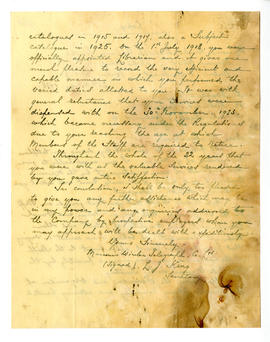 catalogues in 1915 and 1917, also a Subject
catalogue in 1925. On the 1st July 1918, you were
officially appointed Librarian and it gives me
much pleasure to record the very efficient and
capable manner in which you performed the
varied duties allotted to you. It was with
general reluctance that your services were
dispended with on the 30th November 1933
which became necessary under the Regulations
due to your reaching the age at which
Members of the Staff are required to retire.
Throughout the whole of the 22 years that
you were with us the valuable services rendered
by you gave entire satisfaction.
In conclusion, I shall be only too pleased
to give you any further assistance which may be
in my power and any enquiries addressed to
the Company by Institution or Firms whom you
may approach will be dealt with expeditiously.
Yours Sincerely
Wireless Telegraph Co. Ltd
(Signed)